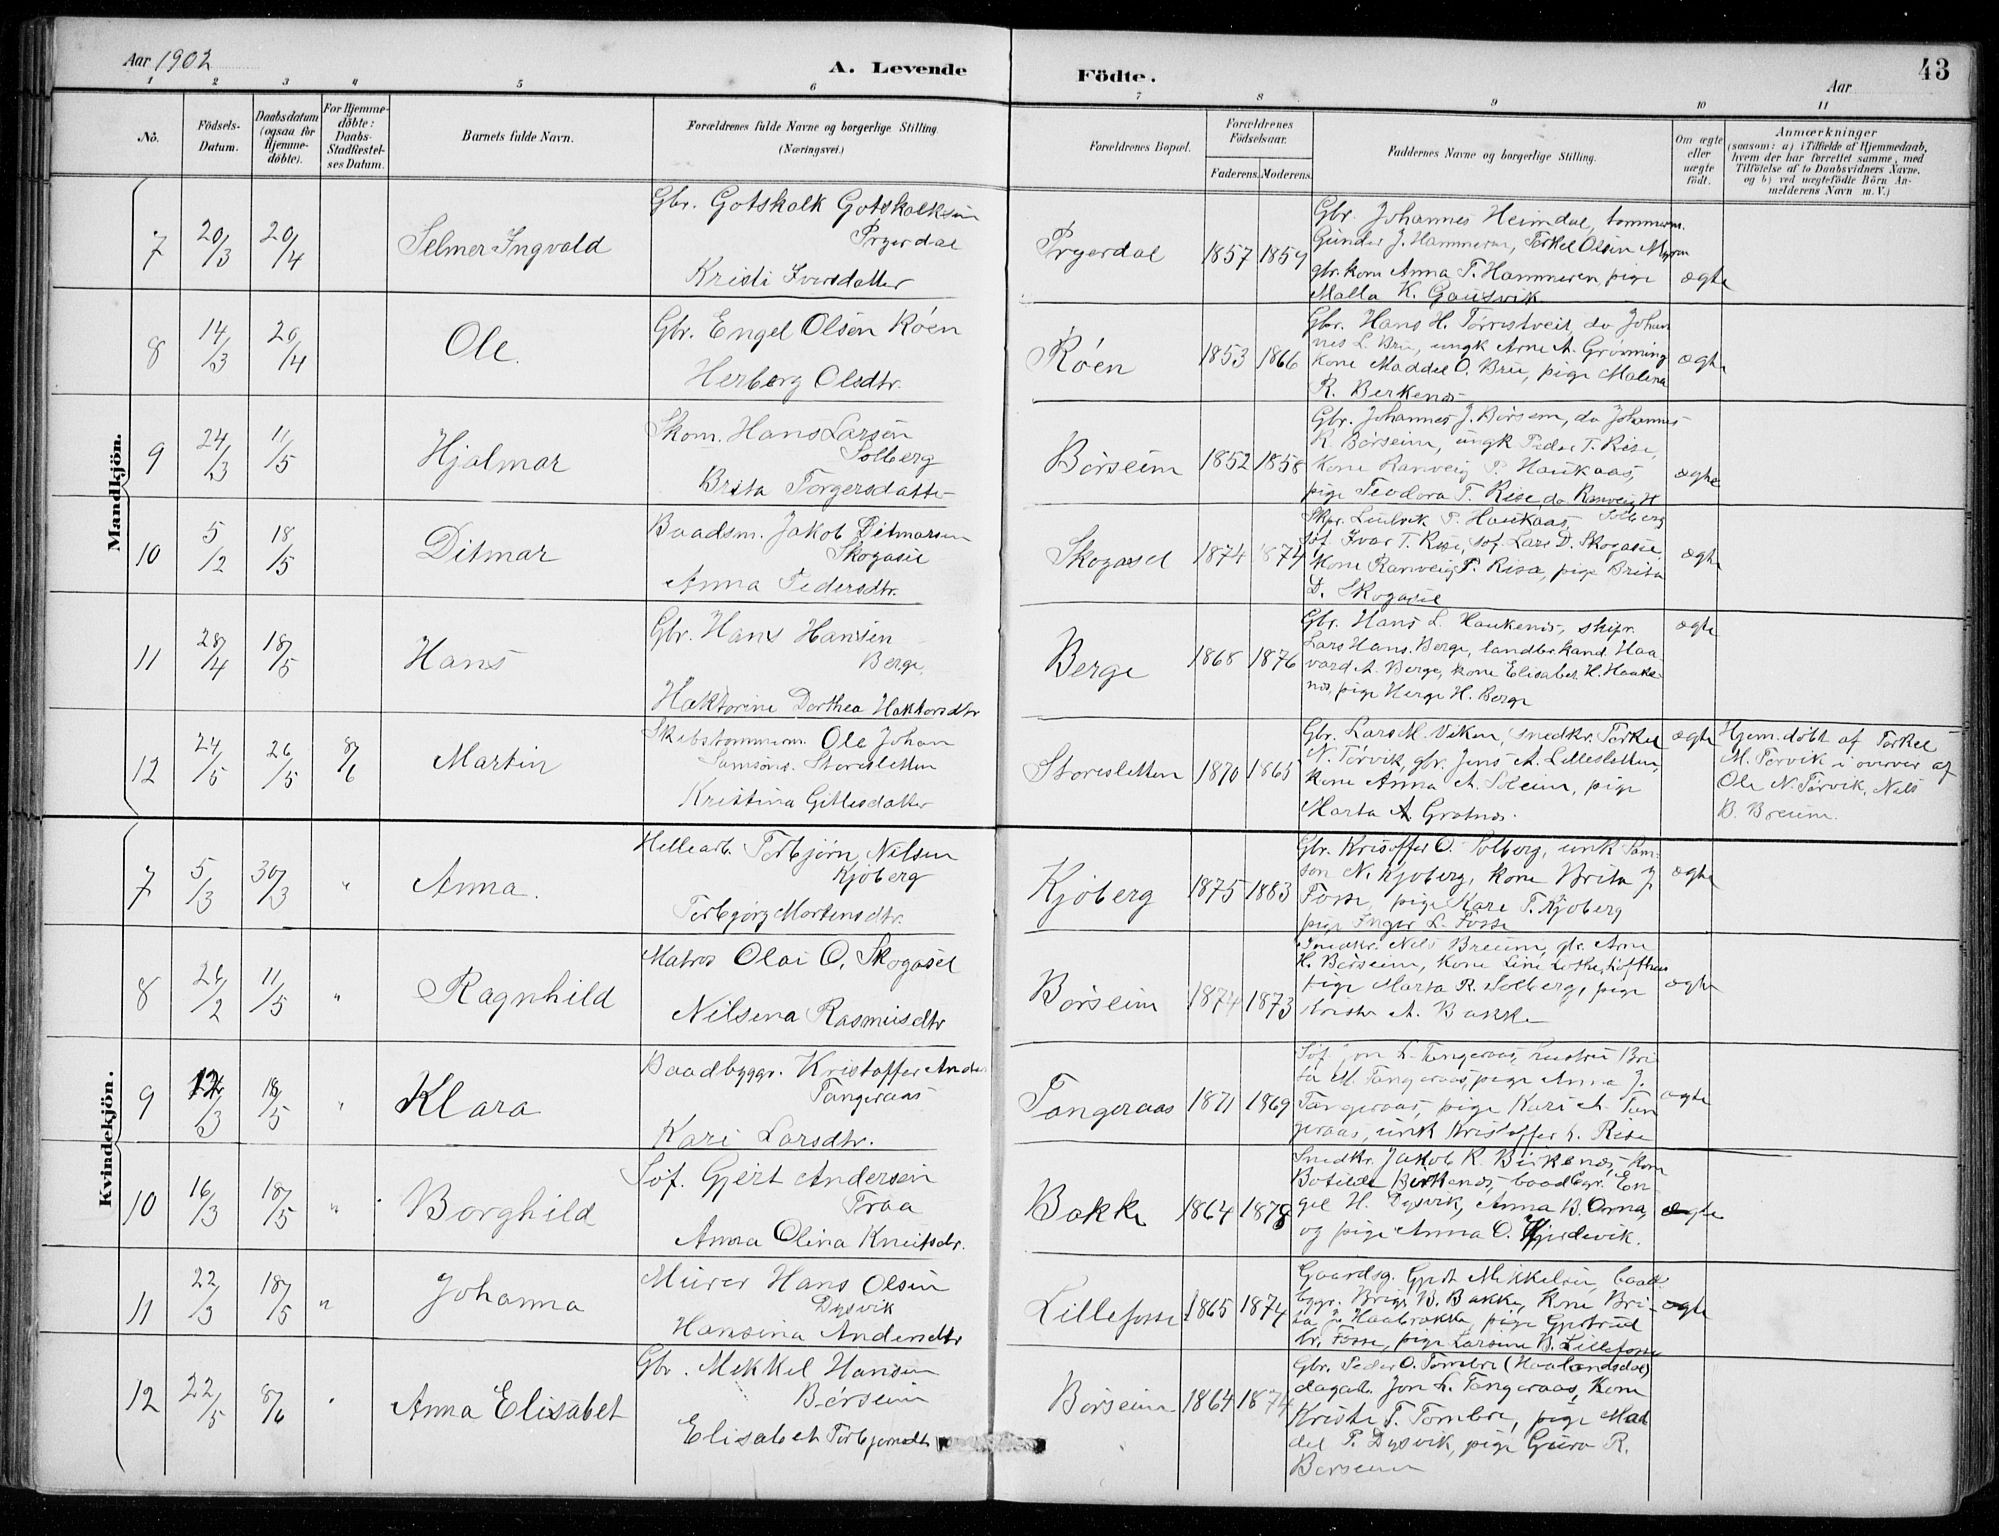 Aar 1902
A. Levende
Födte.
Aar
43
1 2 3 4 5 6 7 8 9 10 11
No.
Födsels-
Datum.
Daabsdatum
(ogsaa for
Hjemme-
döbte).
For Hjemme-
döbte:
Daabs-
Stadfæstel-
ses Datum.
Barnets fulde Navn.
Forældrenes fulde Navne og borgerlige Stilling.
(Næringsvei.)
Forældrenes Bopæl.
Forældrenes
Födselsaar.
Faderens. Moderens.
Faddernes Navne og borgerlige Stilling.
Om ægte
eller
uægte
født.
Anmærkninger
(saasom: a) i Tilfælde af Hjemmedaab,
hvem der har forrettet samme, med
Tilföielse af to Daabsvidners Navne.
og b) ved uægtefödte Börn An-
melderens Navn m. V.)
Mandkjön.
7 20/3 20/4 Selmer Ingvald
Gbr. Gotskalk Gotskalksen
Prgerdal
Kristi Iversdatter
Prgerdal 1857 1859
Gbr. Johannes Heimdal, tømmerm.
Gunder J. Hammeren, Torkel Olsen
gbr. kone Anna T. Hammeren, pige
Malla K. Gausvik
ægte
8 14/3 20/4 Ole.
Gbr. Engel Olsen Røen
Herborg Olsdtr.
Røen 1853 1866
Gbr. Hans H. Tørristveit, do Johan
nes L. Bru, ungk Arne A. Grønning
kone Maddel O. Bru, pige Malena
R. Berkenes
ægte
9 24/3 11/5 Hjalmar
Skom. Hans Larsen
Solberg
Brita Torgersdatter
Børseim 1852 1858
Gbr. Johannes J. Børseim, do Johannes
K. Børseim, ungk Peder T. Rise,
Kone Ranveig P. Haukaas,
pige Teodora T. Rise, do Ranveig H
Solberg
ægte
10 5/2 18/5 Ditmar
Baadsm. Jakob Ditmarsen
Skogasel
Anna Pedersdtr.
Skogasel 1874 1874
Skpr. Ludvik P. Haukaas,
Søf. Ivar T. Rise, Søf. Lars D. Skogasel,
Kone Ranveig T. Risa, pige Brita
D. Skogasel
ægte
11 28/4 18/5 Hans
Gbr. Hans Hansen
Berge
Haktorine Dorthea Haktorsdtr
Berge 1868 1876
Gbr. Hans L. Haukenes, skipr.
Lars Hans. Berge, landbr kand. Haa-
vard A. Berge, kone Elisabet H. Hauke-
nes, pige Herge H. Berge
ægte
12 24/5 26/5 8/6 Martin
Skibstømmerm. Ole Johan
Samsøns. Storesletten
Kristina Gittlesdatter
Storesletten 1870 1865
Gbr. Lars M. Viken, snedkr. Torkel
N. Tørvik, gbr. Jens A. Lillesletten,
kone Anna A. Soleim, pige
Marta A Grotnes.
ægte
Hjem. døbt af Torkel
M. Torvik i overvær af
Ole N. Tørvik, Nils
B. Breum.
Kvindekjön.
7 5/3 30/3 " Anna.
Hellearb. Torbjørn Nilsen
Kjøberg
Torbjørg Mortensdtr.
Kjøberg 1875 1883
Gbr. Kristoffer O. Solberg, unk Sam-
son N. Kjøberg, kone Brita J
Fosse, pige Kari T. Kjøberg
pige Inger L. Fosse
ægte
8 26/2 11/5 " Ragnhild
Matros Olai O. Skogasel
Nilsena Rasmusdtr
Børseim 1874 1873
Snedkr. Nils Breum, gbr. Arne
H. Børseim, kone Line Lothe, Lofthus
pige Marta R. Solberg, pige
A. Bakke
ægte
9 12/3 18/5 " Klara
Baadbyggr. Kristoffer Anders
Tangeraas
Kari Larsdtr.
Tangeraas 1871 1869
Søf. Jon L. Tangeraas, hustru Bri-
ta M. Tangeraas, pige Anna J.
Tangeraas, pige Kari A. Tan
geraas, unk Kristoffer L. Rise
ægte
10 16/3 18/5 " Borghild
Søf. Gjert Andersen
Traa
Anna Olina Knutsdtr.
Bakke 1864 1878
Snedkr. Jakob R. Birkenes, kone
Botilde Birkenes, baadbgr. En-
gel H. Dysvik, Anna B. Orma,
og pige Anna O. Hjerdevik.
ægte
11 22/3 18/5 " Johanna
Murer Hans Olsen
Dysvik
Hansina Andersdtr
Lillefosse 1865 1874
Gaardsg. Gjert Mikkelsen, baad
byggr. Brigt B. Bakke, Kone Bri-
ta J. Haabrække, pige Gjertrud
Fosse, pige Larsine B. Lillefosse
ægte
12 22/5 8/6 " Anna Elisabet
Gbr. Mikkel Hansen
Børseim
Elisabet Torbjørnsdtr
Børseim 1864 1874
Gbr. Peder O. Tombre (Haalandsdal)
dagab. Jon L. Tangeraas, Kone
Kristi T. Tombre, pige Mad
del P. Dysvik, pige Guro R.
Børseim